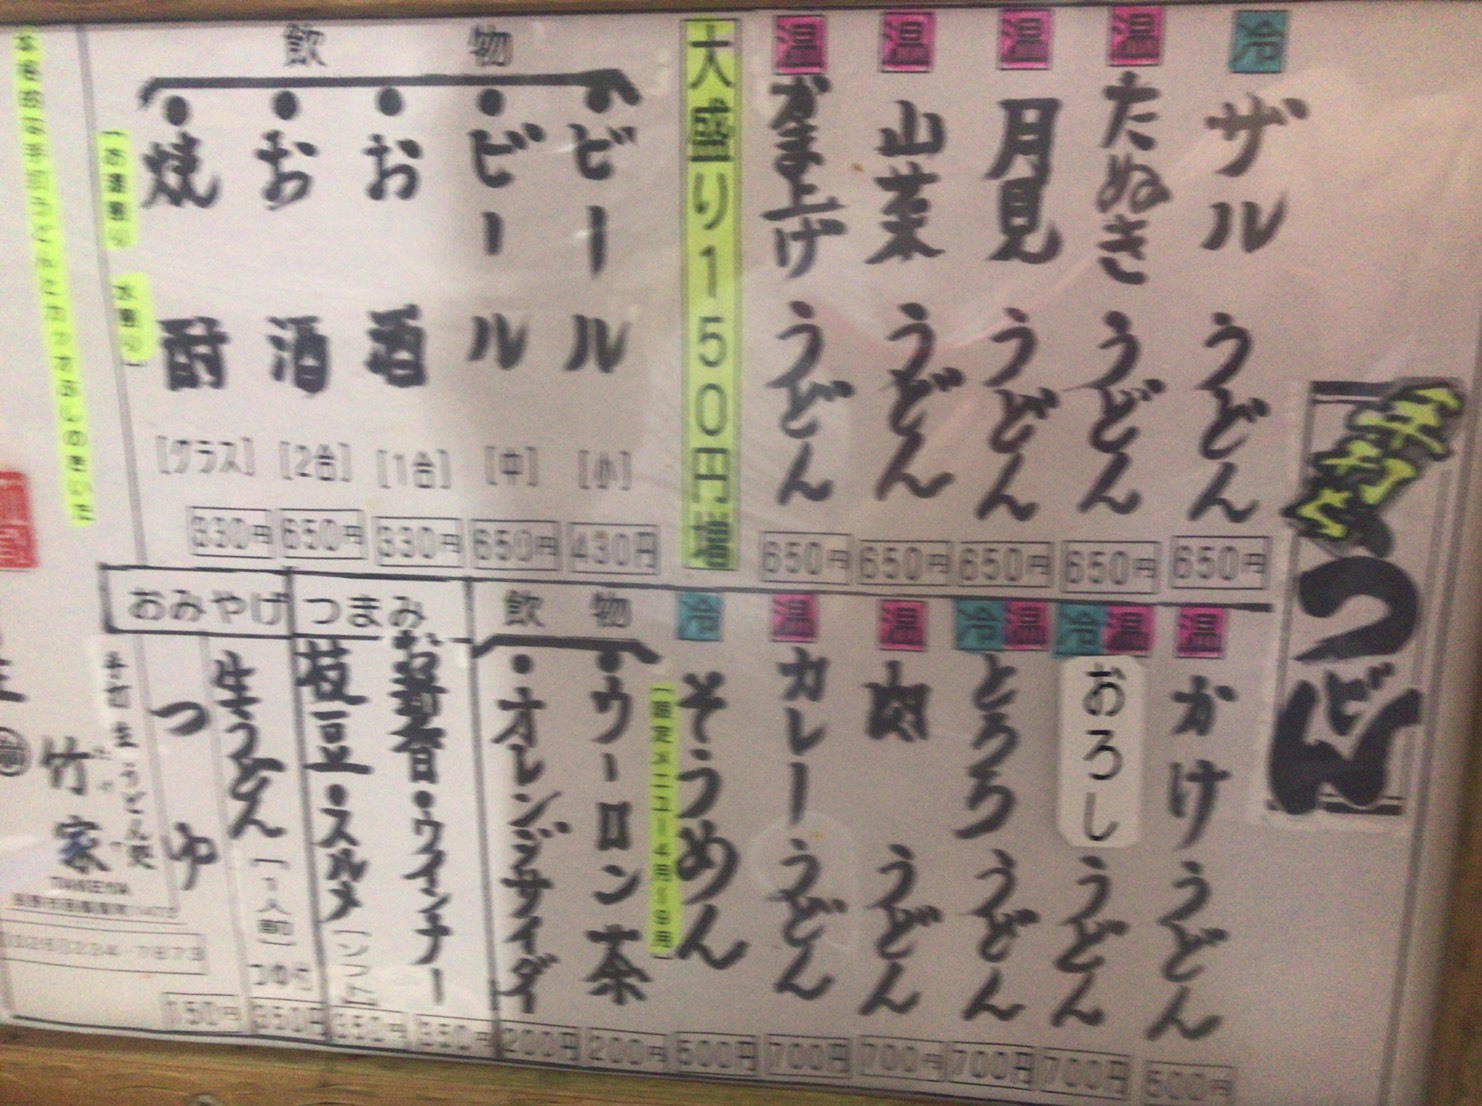 手打ち
うどん
冷 ザル うどん 650円
温 たぬき うどん 650円
温 月見 うどん 650円
温 山菜 うどん 650円
温 かま上げ うどん 650円
大盛り150円増
飲物
・ビール [小] 430円
・ビール [中] 650円
・お酒 [1合] 330円
・お酒 [2合] 650円
・焼酎 [グラス] 330円
(お湯割り 水割り)
温 かけ うどん 500円
冷 温 おろし うどん 700円
冷 温 とろろ うどん 700円
温 肉 うどん 700円
温 カレー うどん 700円
冷 そうめん 500円
[限定メニュー4月~9月]
飲物
・ウーロン茶 200円
・オレンジサイダー 200円
つまみ
お新香・ウインナー 350円
枝豆・スルメ [ソフト] 350円
おみやげ
生うどん [1人前] つゆ付 350円
つゆ 150円
手打 生うどん処
竹家
TAKEYA